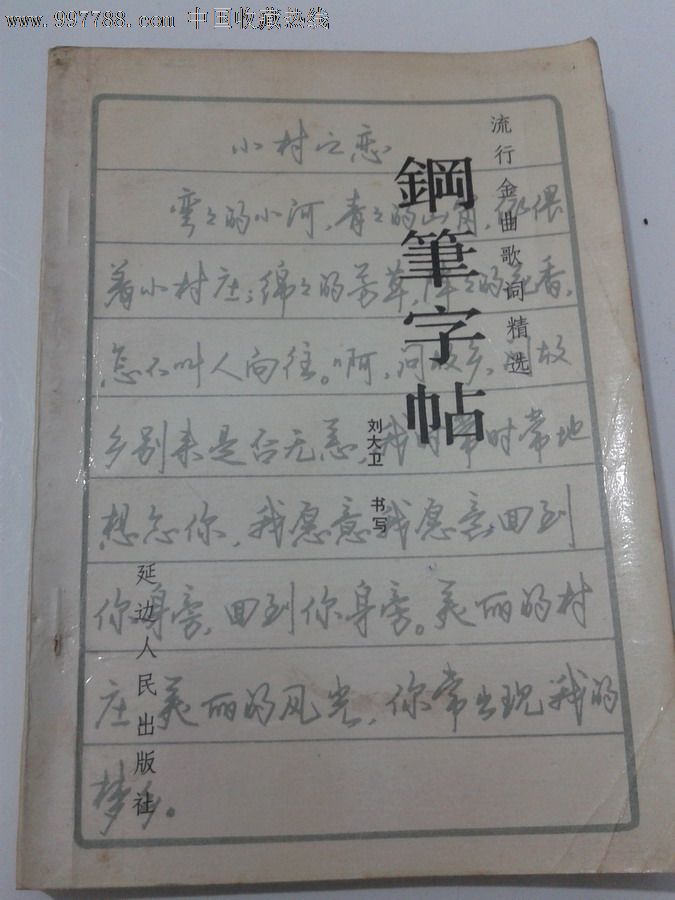 www.997788.com 中国收藏热线
流行金曲歌词精选
鋼筆字帖
刘大卫 书写
小村之恋
弯々的小河，青々的山岗，依偎
着小村庄；绵々的芳草，阵々的花香，
怎不叫人向往。啊，问故乡，问故
乡别来是否无恙，我时常时常地
想念你，我愿意我愿意，回到
你身旁，回到你身旁。美丽的村
庄美丽的风光，你常出现我的
梦乡。
延边人民出版社